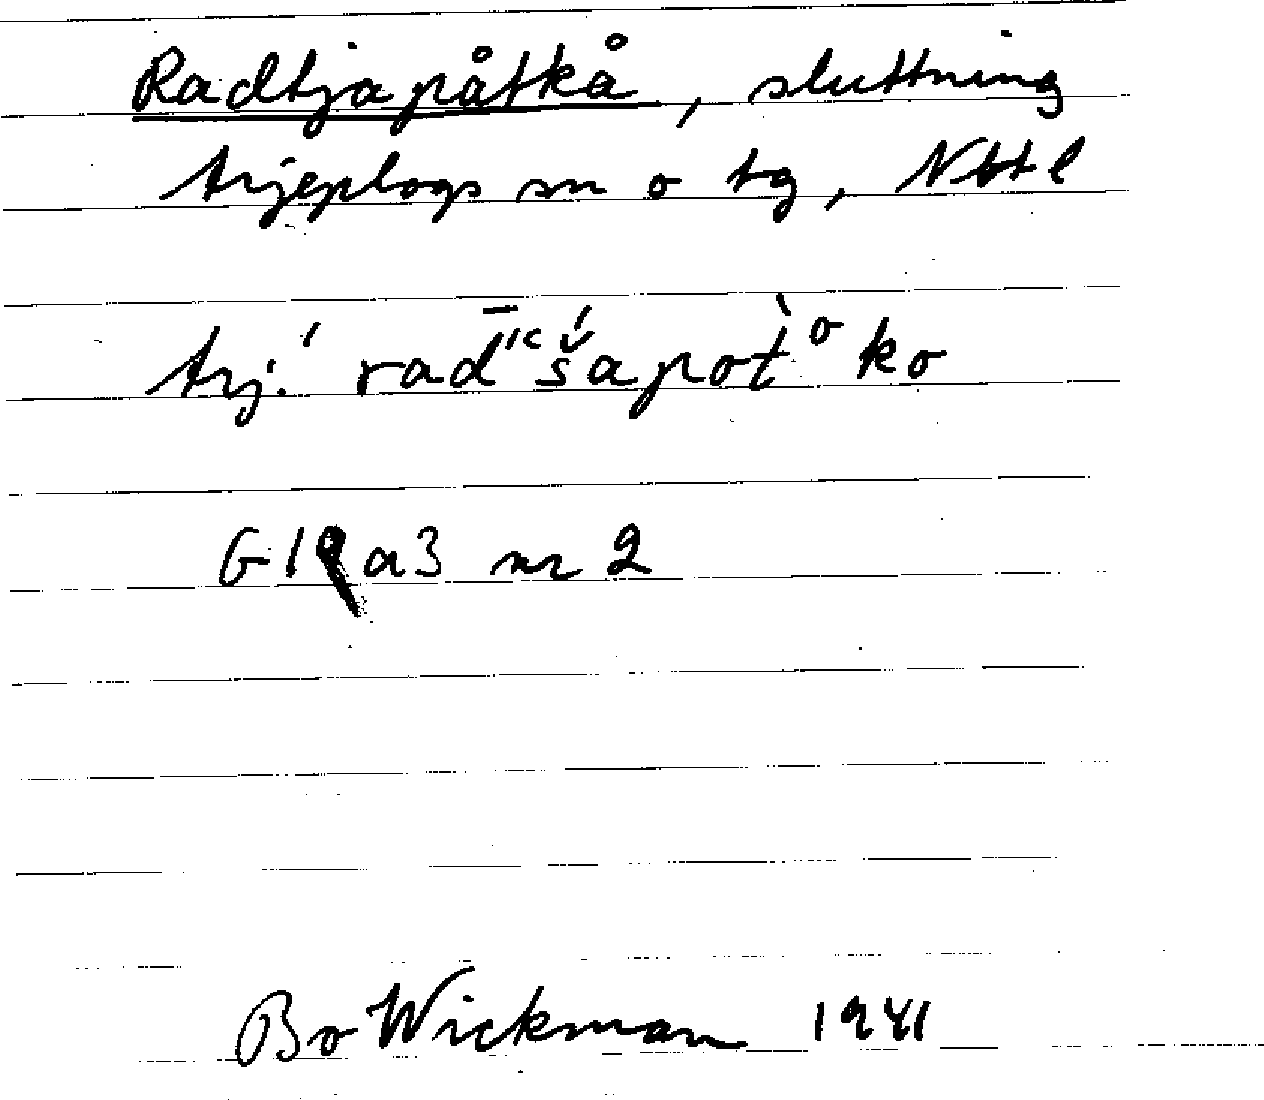 Radtjapåtkå, sluttning
Arjeplogs sn o tg, Nbtl
Arj.
G19a3 nr 2
Bo Wickman 1941